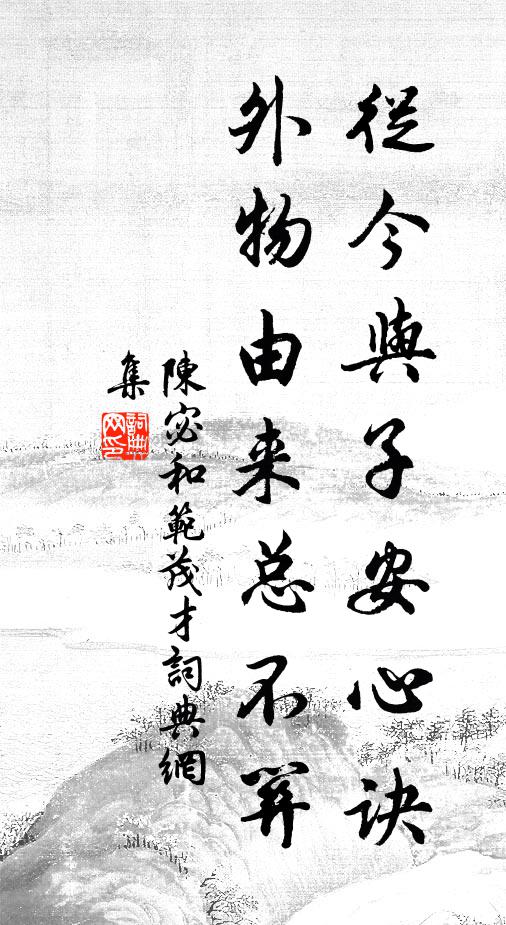 從今與子安心訣
外物由来总不關
陳宓和範茂才詞典網
集
詞典網印